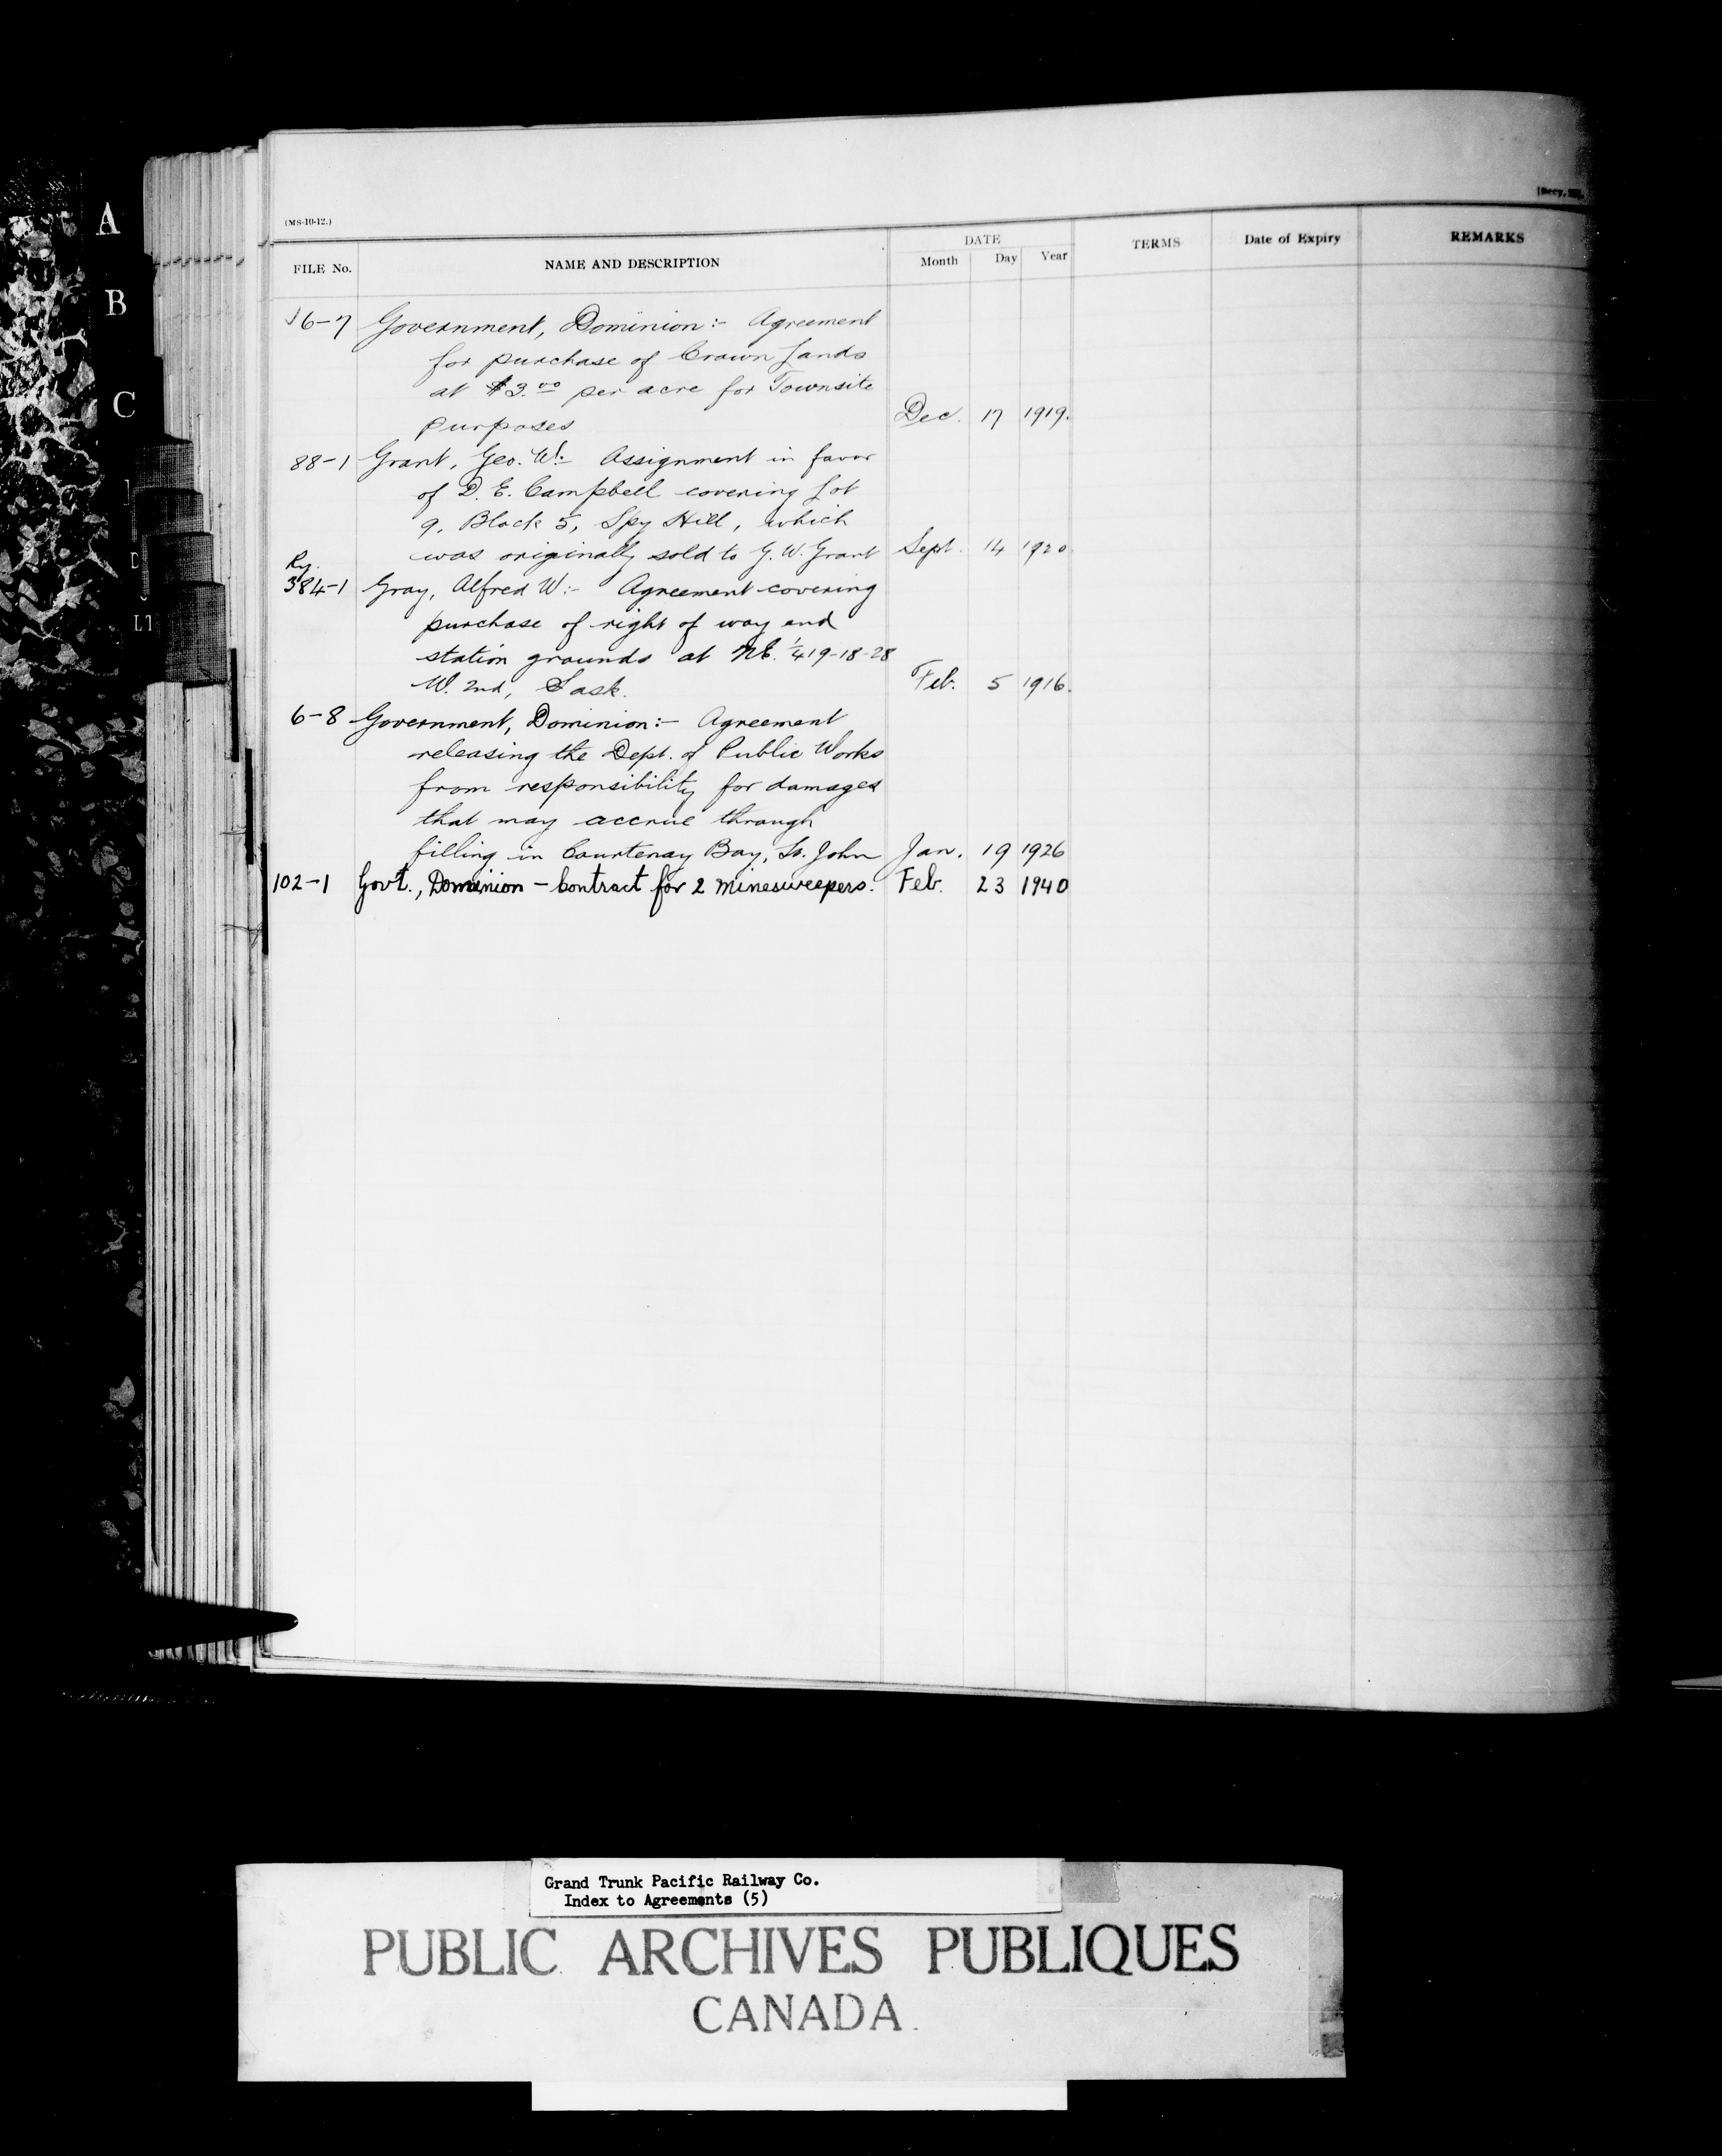 (MS-10-12.)
FILE No. NAME AND DESCRIPTION DATE Month Day Year TERMS Date of Expiry REMARKS
6-7 Government, Dominion:- Agreement
for purchase of Crown Lands
at $3.00 per acre for Townsite
purposes Dec. 17 1919.
88-1 Grant, Geo. W:- Assignment in favor
of D. E. Campbell covering Lot
9, Block 5, Spy Hill, which
was originally sold to G. W. Grant Sept. 14 1920.
Ry.
384-1 Gray, Alfred W:- Agreement covering
purchase of right of way and
station grounds at NE. 1/4 19-18-28
W. 2nd, Sask. Feb. 5 1916.
6-8 Government, Dominion:- Agreement
releasing the Dept. of Public Works
from responsibility for damages
that may accrue through
filling in Courtenay Bay, St. John Jan. 19 1926
102-1 Govt., Dominion - Contract for 2 minesweepers. Feb. 23 1940
A
B
C
D
Grand Trunk Pacific Railway Co.
Index to Agreements (5)
PUBLIC ARCHIVES PUBLIQUES
CANADA